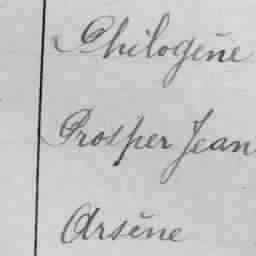 Philogène
Prosper Jean
Arsène